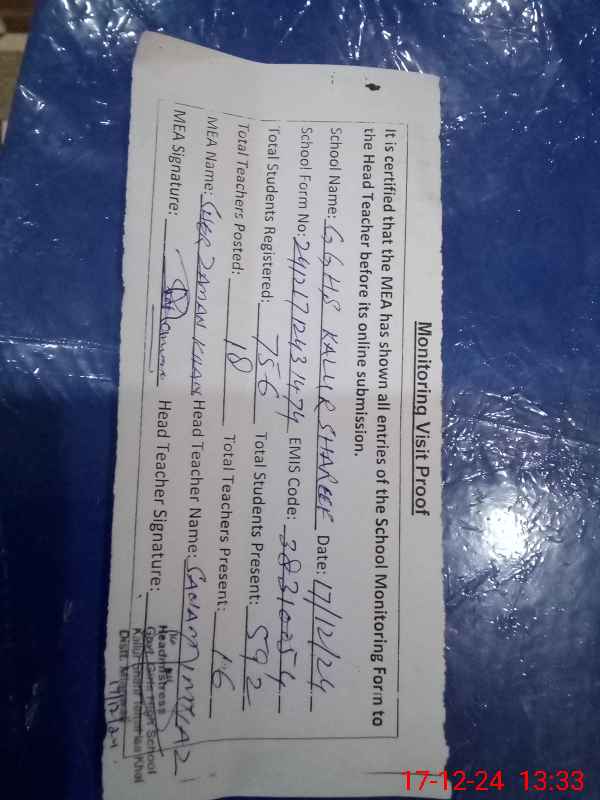 Monitoring Visit Proof
It is certified that the MEA has shown all entries of the School Monitoring Form to
the Head Teacher before its online submission.
School Name: GGHS KALUR SHAREEF Date: 17/12/24
School Form No: 24121712431474 EMIS Code: 38310054
Total Students Registered: 756 Total Students Present: 592
Total Teachers Posted: 18 Total Teachers Present: 16
MEA Name: SHER ZAMAN KHAN Head Teacher Name: SANAM IMTIAZ
MEA Signature: Head Teacher Signature:
Headmistress
Govt. Girls High School
Kallur Sharif Tehsil Isa Khel
Distt. Mianwali
17/12/24
17-12-24 13:33